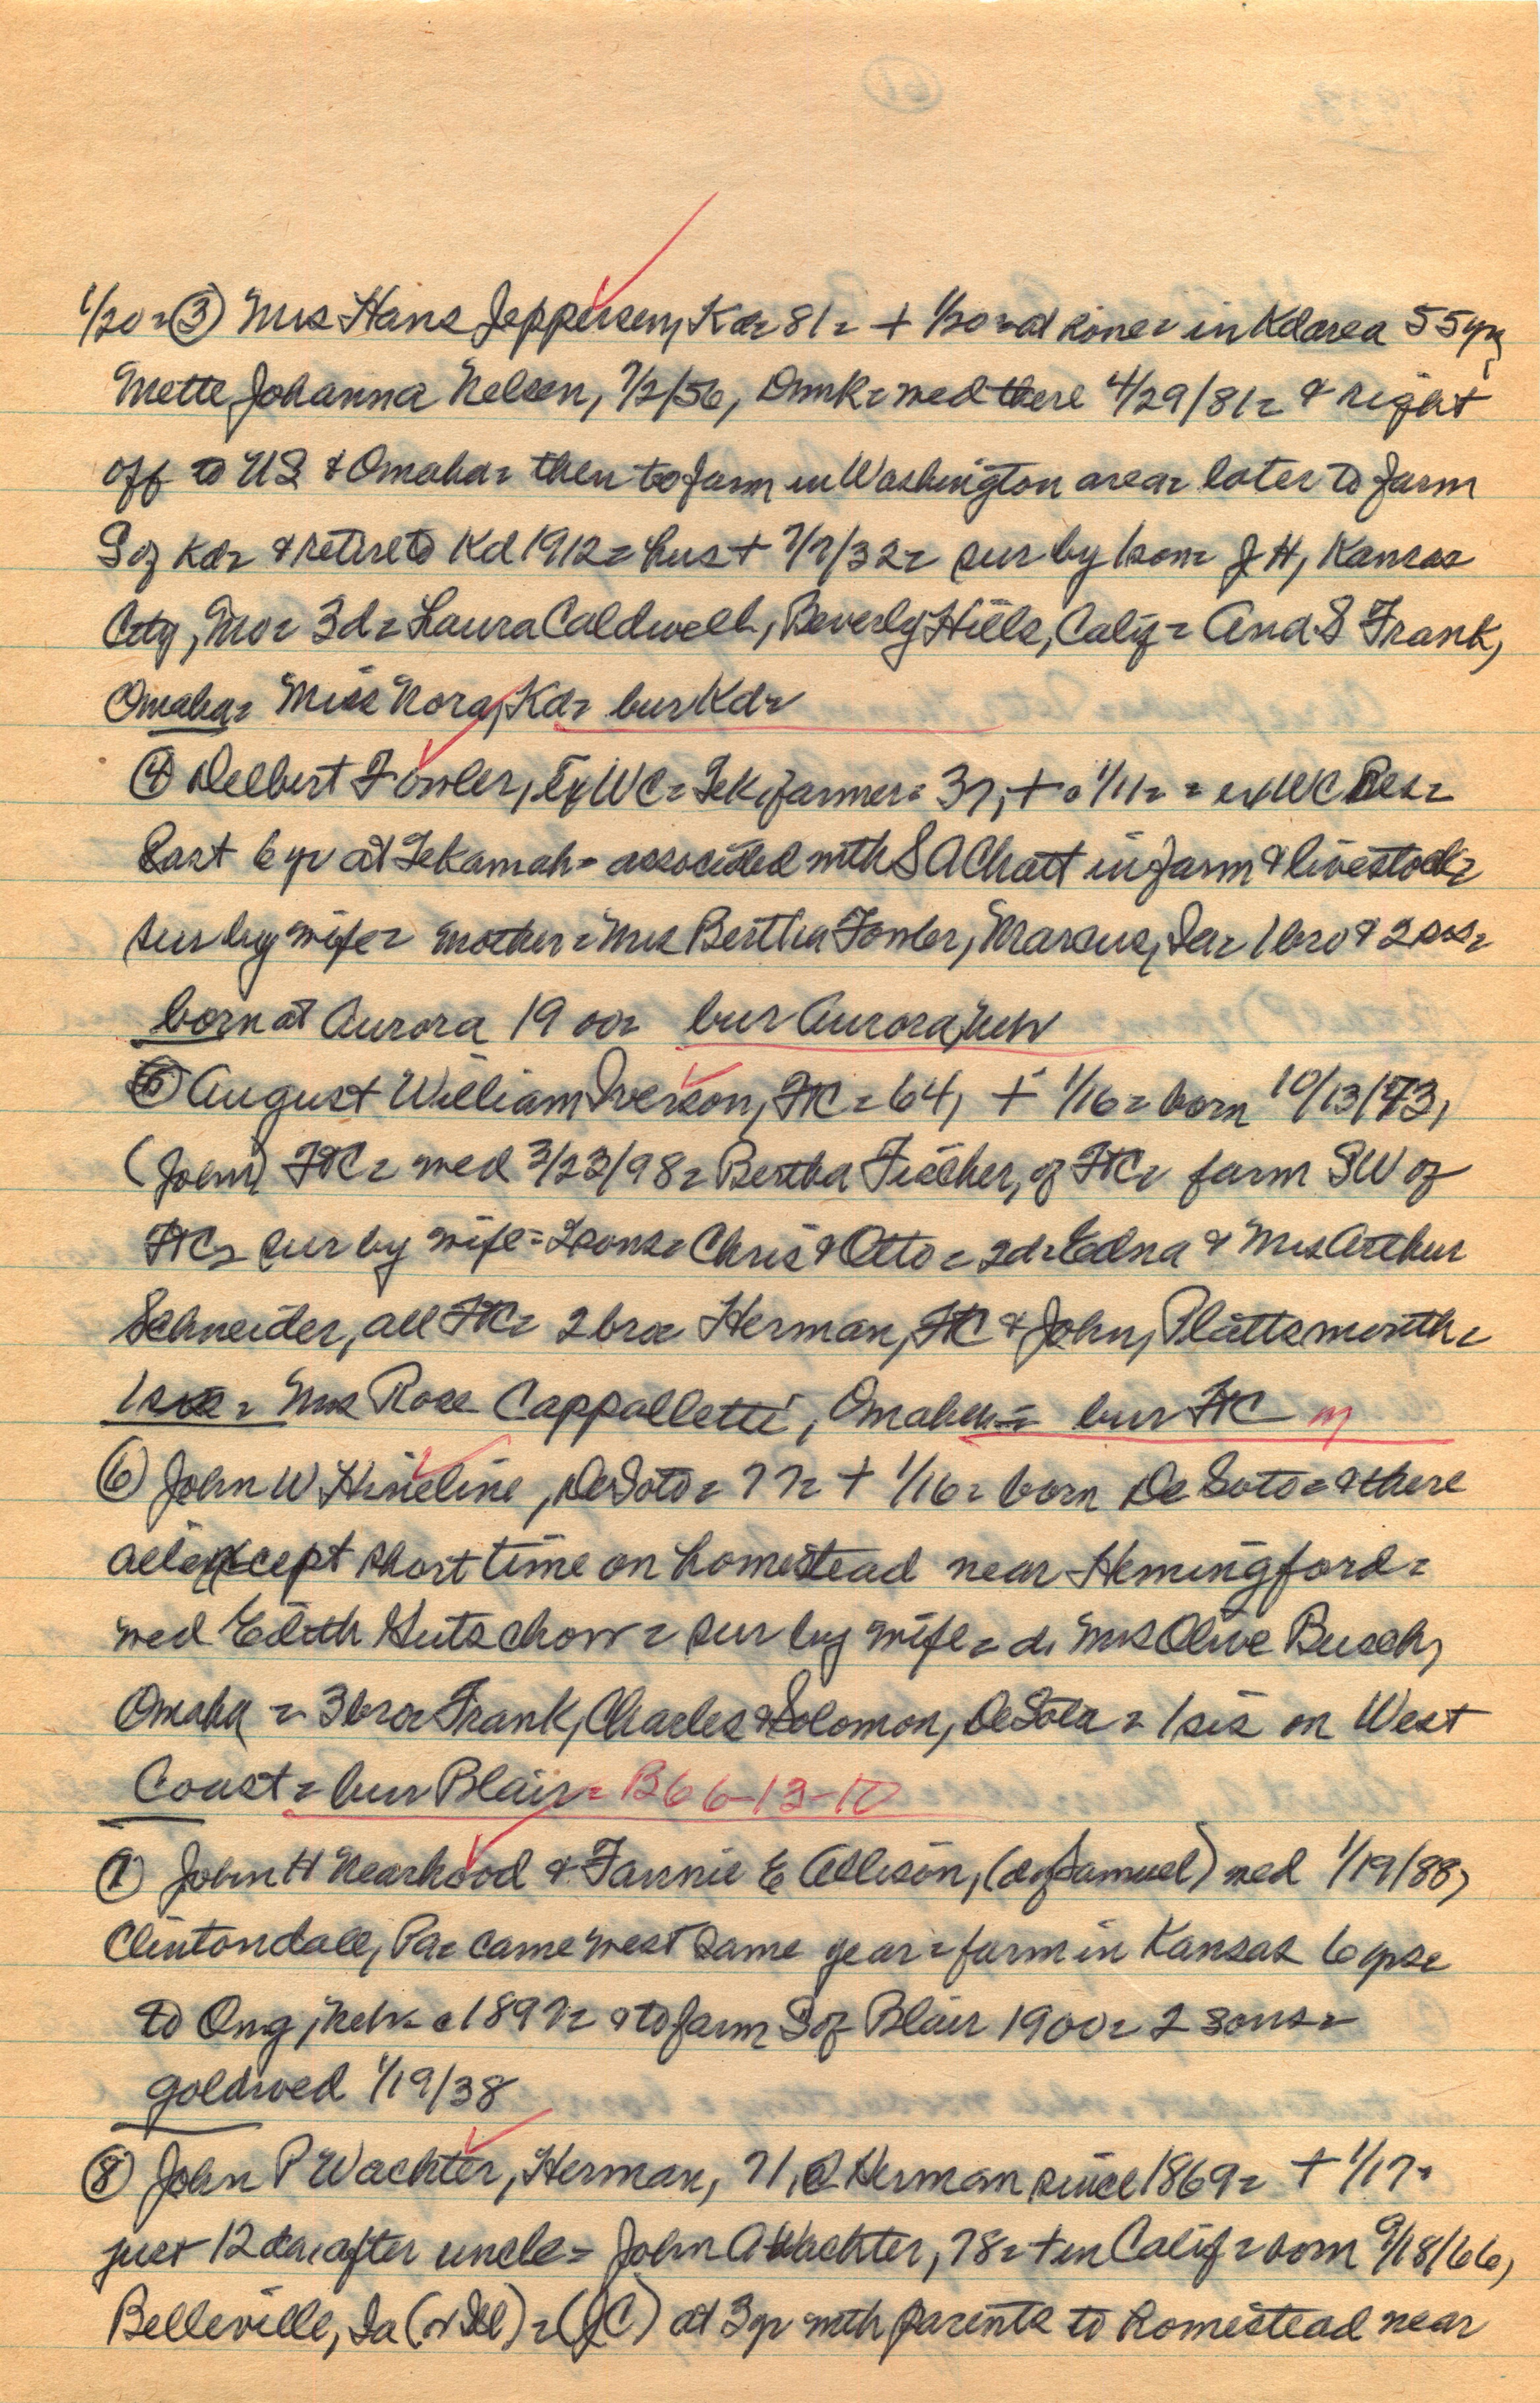 1/20 = ③ Mrs Hans Jeppesen, Kd = 81 = + 1/20 = at home = in Kd area 55 yrs
Mette Johanna Nelsen, 7/2/56, Dmk = med there 4/29/81 = & right
off to US & Omaha = then to farm in Washington area = later to farm
S of Kd = & retire to Kd 1912 = hus + 7/7/32 = sur by 1 son = J H, Kansas
City, Mo = 3d = Laura Caldwell, Beverly Hills, Calif = And S Frank,
Omaha = Miss Nora, Kd = bur Kd =
④ Delbert Fowler, Ex WC = Tek farmer = 37, + 1/11 = = ex WC Res =
Last 6 yr at Tekamah = associated with S A Chatt in farm & livestock =
sur by wife = mother = Mrs Bertha Fowler, Marcus, Ia = 1 bro & 2 sis =
born at Aurora 1900 = bur Aurora, Neb
⑤ August William Iverson, FtC = 64, + 1/16 = born 10/13/73,
(John) FtC = med 3/23/98 = Bertha Fischer, of FtC = farm SW of
FtC = sur by wife = 2 sons = Chris & Otto = 2d = Edna & Mrs Arthur
Schneider, all FtC = 2 bro = Herman, FtC & John, Plattsmouth =
1 sis = Mrs Rose Cappalletti, Omaha = bur FtC m
⑥ John W Hineline, DeSoto = 77 = + 1/16 = born De Soto = & there
all except short time on homestead near Hemingford =
med Edith Gutschow = sur by wife = d, Mrs Olive Busch,
Omaha = 3 bro = Frank, Charles & Solomon, DeSoto = 1 sis on West
Coast = bur Blair = B66-13-10
⑦ John H Nearhood & Fannie E Allison, (d of Samuel) med 1/19/88,
Clintondall, Pa = came west same year = farm in Kansas 6 yrs =
to Ong, Neb = c 1897 = & to farm S of Blair 1900 = 2 sons =
gold wed 1/19/38
⑧ John P Wachter, Herman, 71, @ Herman since 1869 = + 1/17 =
just 12 da, after uncle = John A Wachter, 78 = + in Calif = born 9/18/66,
Belleville, Ia (or Ill) = (JC) at 3 yr with parents to homestead near